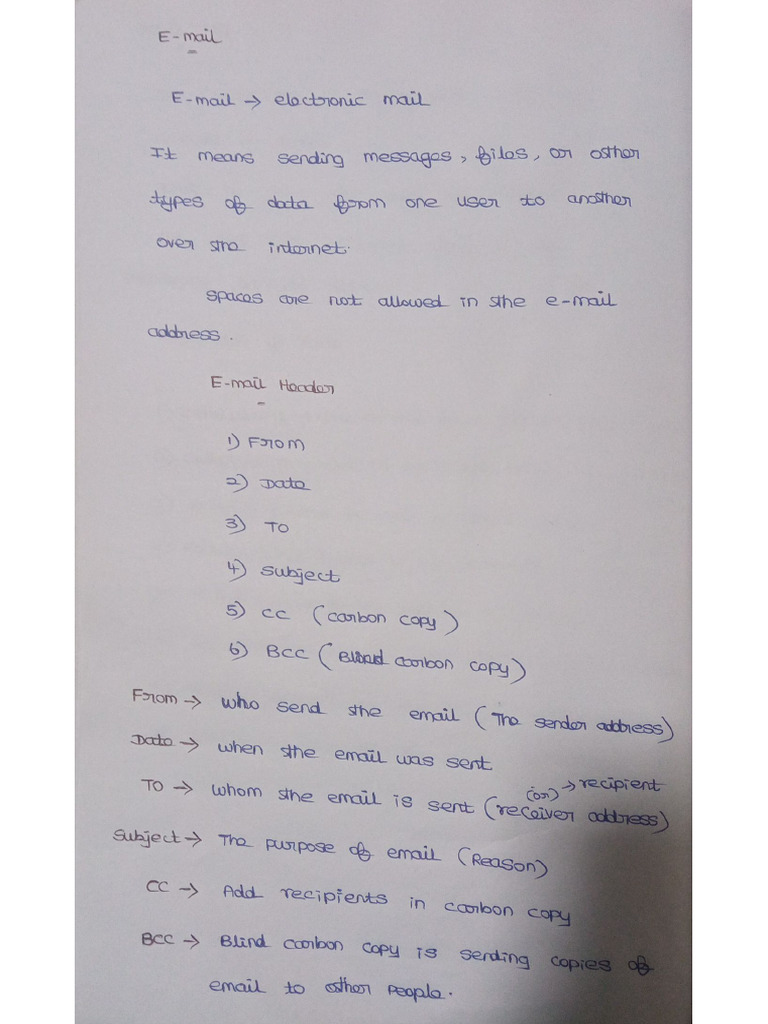 E-mail
E-mail → electronic mail
It means sending messages, files, or other
types of data from one user to another
over the internet.
spaces are not allowed in the e-mail
address.
E-mail Header
1) From
2) Date
3) TO
4) subject
5) CC (carbon copy)
6) BCC (Blind carbon copy)
From → who send the email (The sender address)
Date → when the email was sent
(or) → recipient
TO → whom the email is sent (receiver address)
Subject → The purpose of email (Reason)
CC → Add recipients in carbon copy
BCC → Blind carbon copy is sending copies of
email to other people.